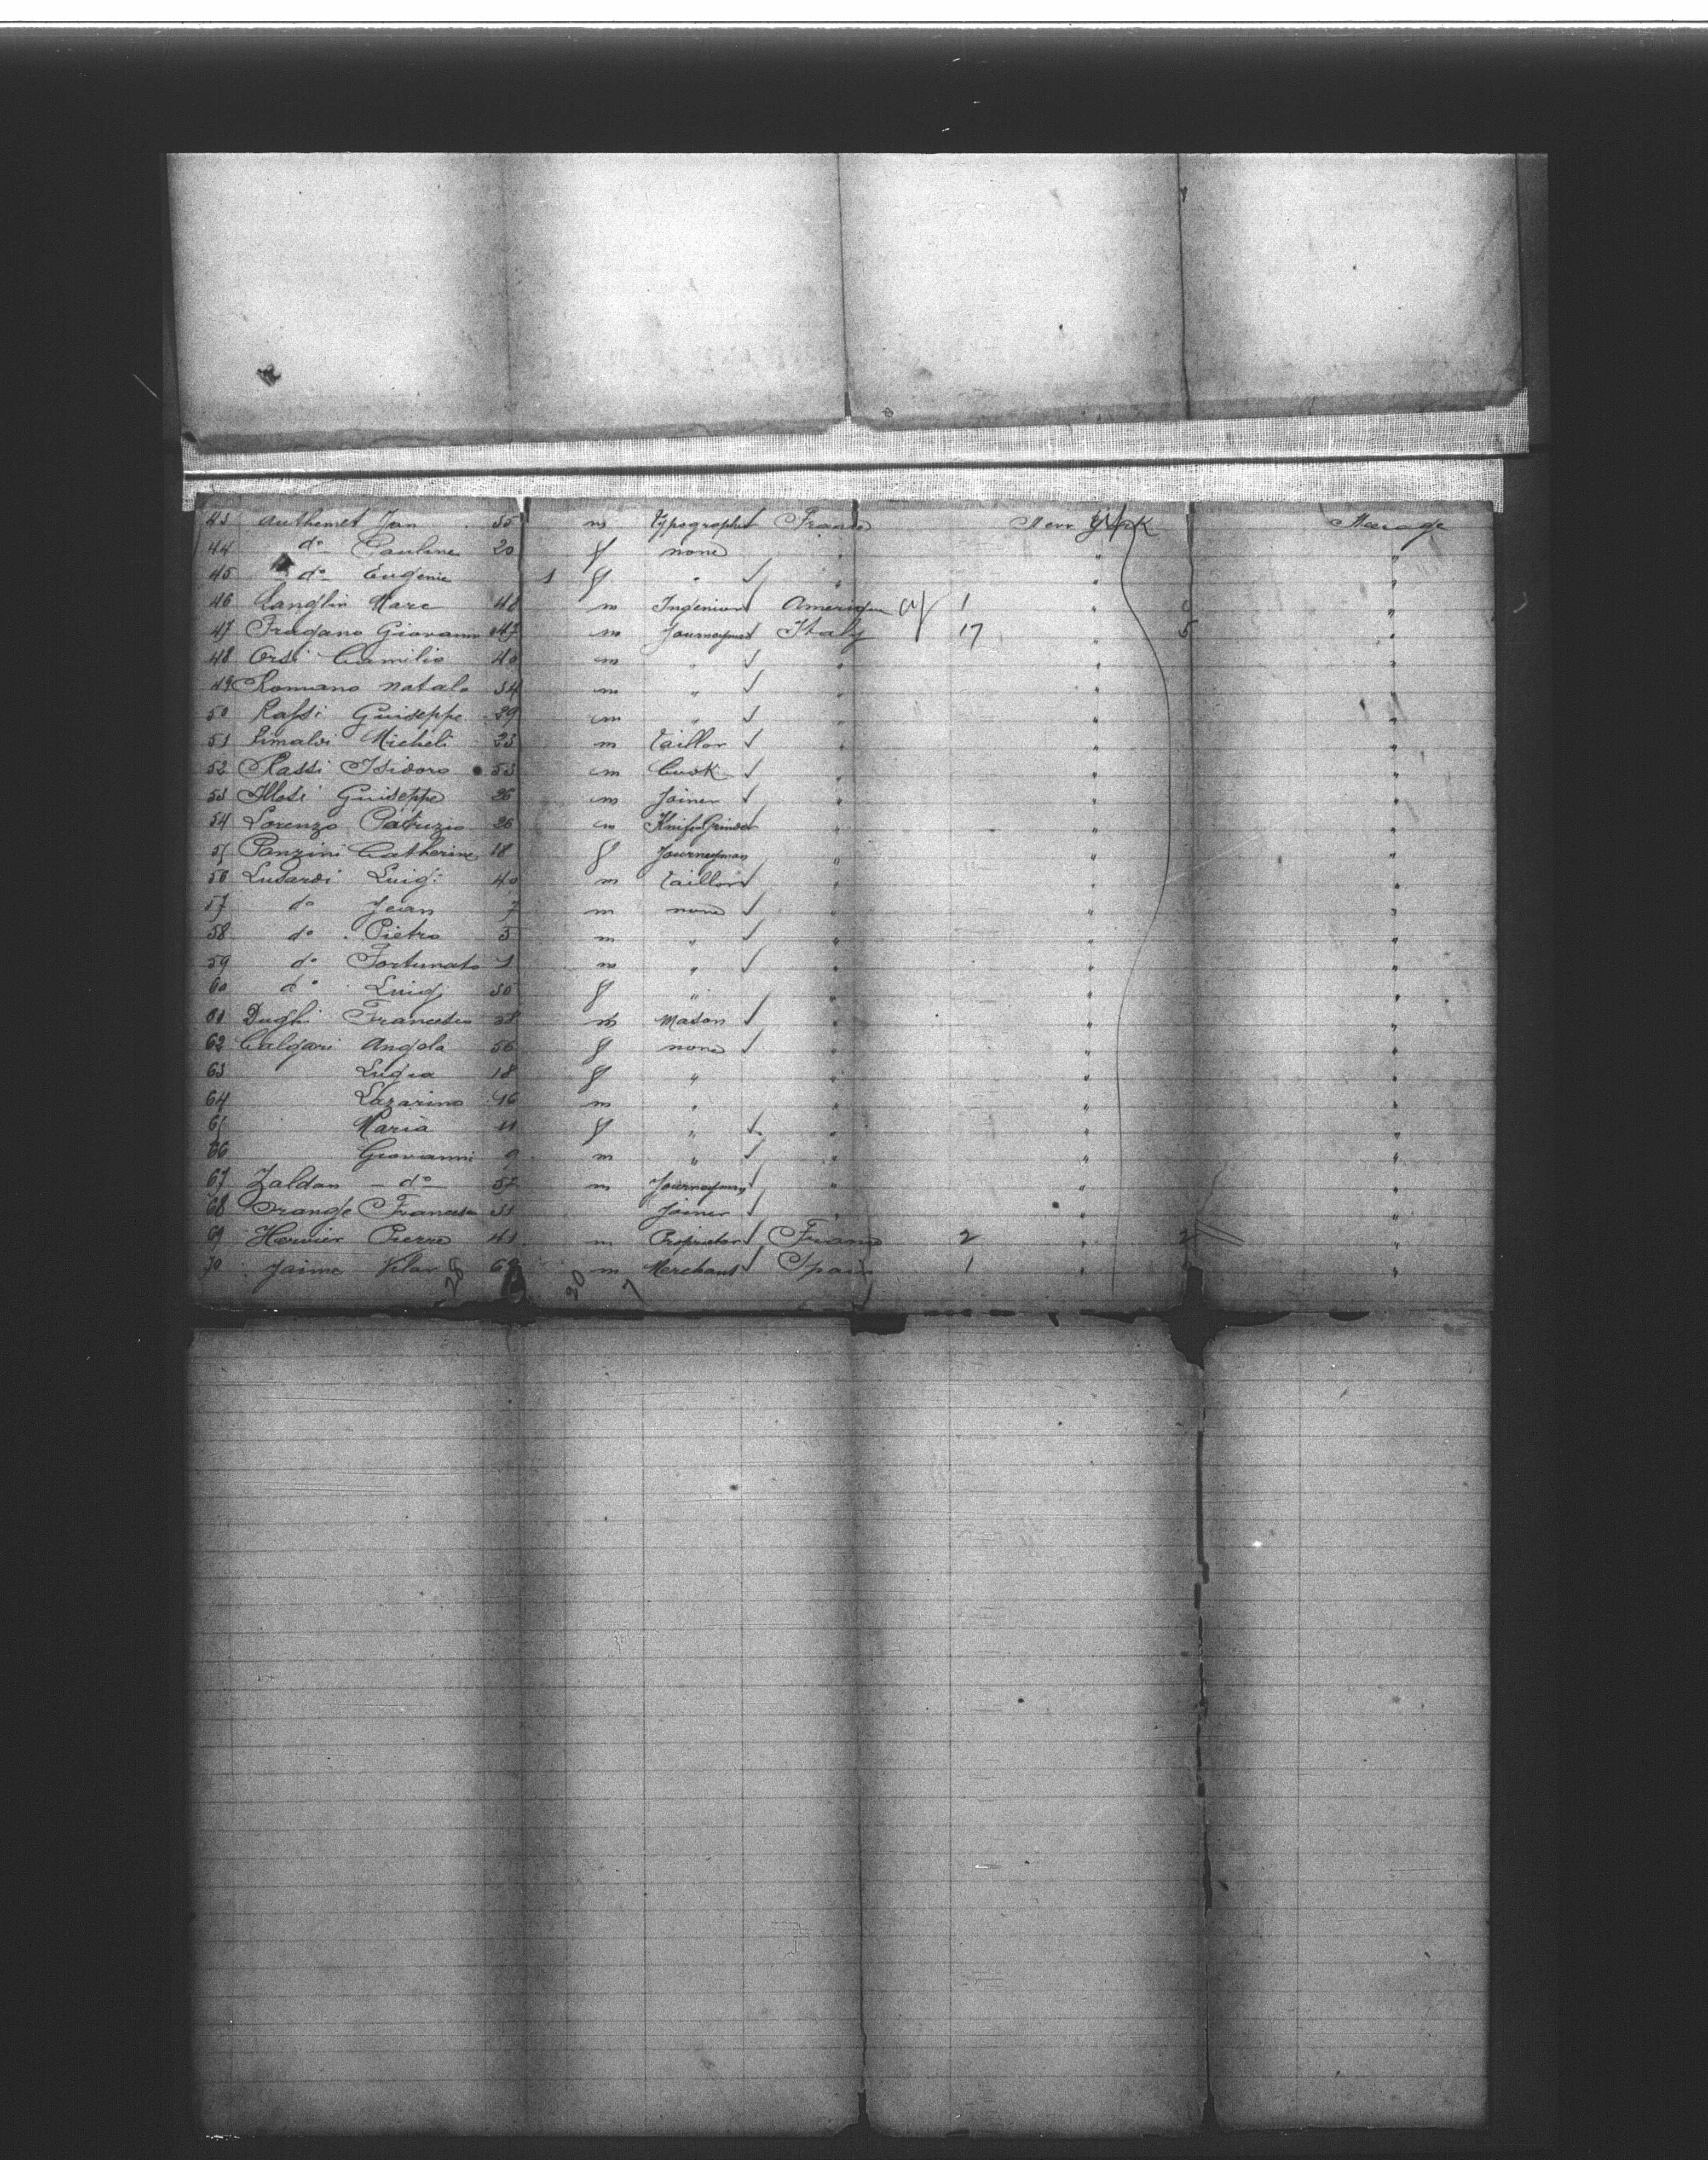 43 Authemet Jan 35 m typographe France New York Steerage
44 do Pauline 20 f none " " "
45 do Eugenie 1 f " " " "
46 Langlin Marc 48 m Ingenieur Amerique 1 " "
47 Fragano Giovanni 47 m Journeyman Italy 17 " 5 "
48 Orsi Camilio 40 m " " " "
49 Romano Natale 34 m " " " "
50 Raffi Guiseppe 39 m " " " "
51 Rimaldi Micheli 23 m taillor " " "
52 Rassi Isidoro 53 m Cook " " "
53 Guiseppe 26 m Joiner " " "
54 Lorenzo Patrizio 26 m Knife Grinder " " "
55 Panzini Catherine 18 f Journeyman " " "
56 Lusardi Luigi 40 m taillor " " "
57 do Jean 7 m none " " "
58 do Pietro 5 m " " " "
59 do Fortunato 1 m " " " "
60 do Luigi 30 f " " " "
61 Dughi Francesco 38 m Mason " " "
62 Calgari Angola 56 f none " " "
63 Lugia 18 f " " " "
64 Lazarino 16 m " " " "
65 Maria 11 f " " " "
66 Giovanni 9 m " " " "
67 Zaldan do 57 m Journeyman " " "
68 Orange Francesco 31 Joiner " " "
69 Hervier Pierre 41 m Proprietor France 2 " 2 "
70 Jaime Vilar 68 m Merchant Spain 1 " "
20 7